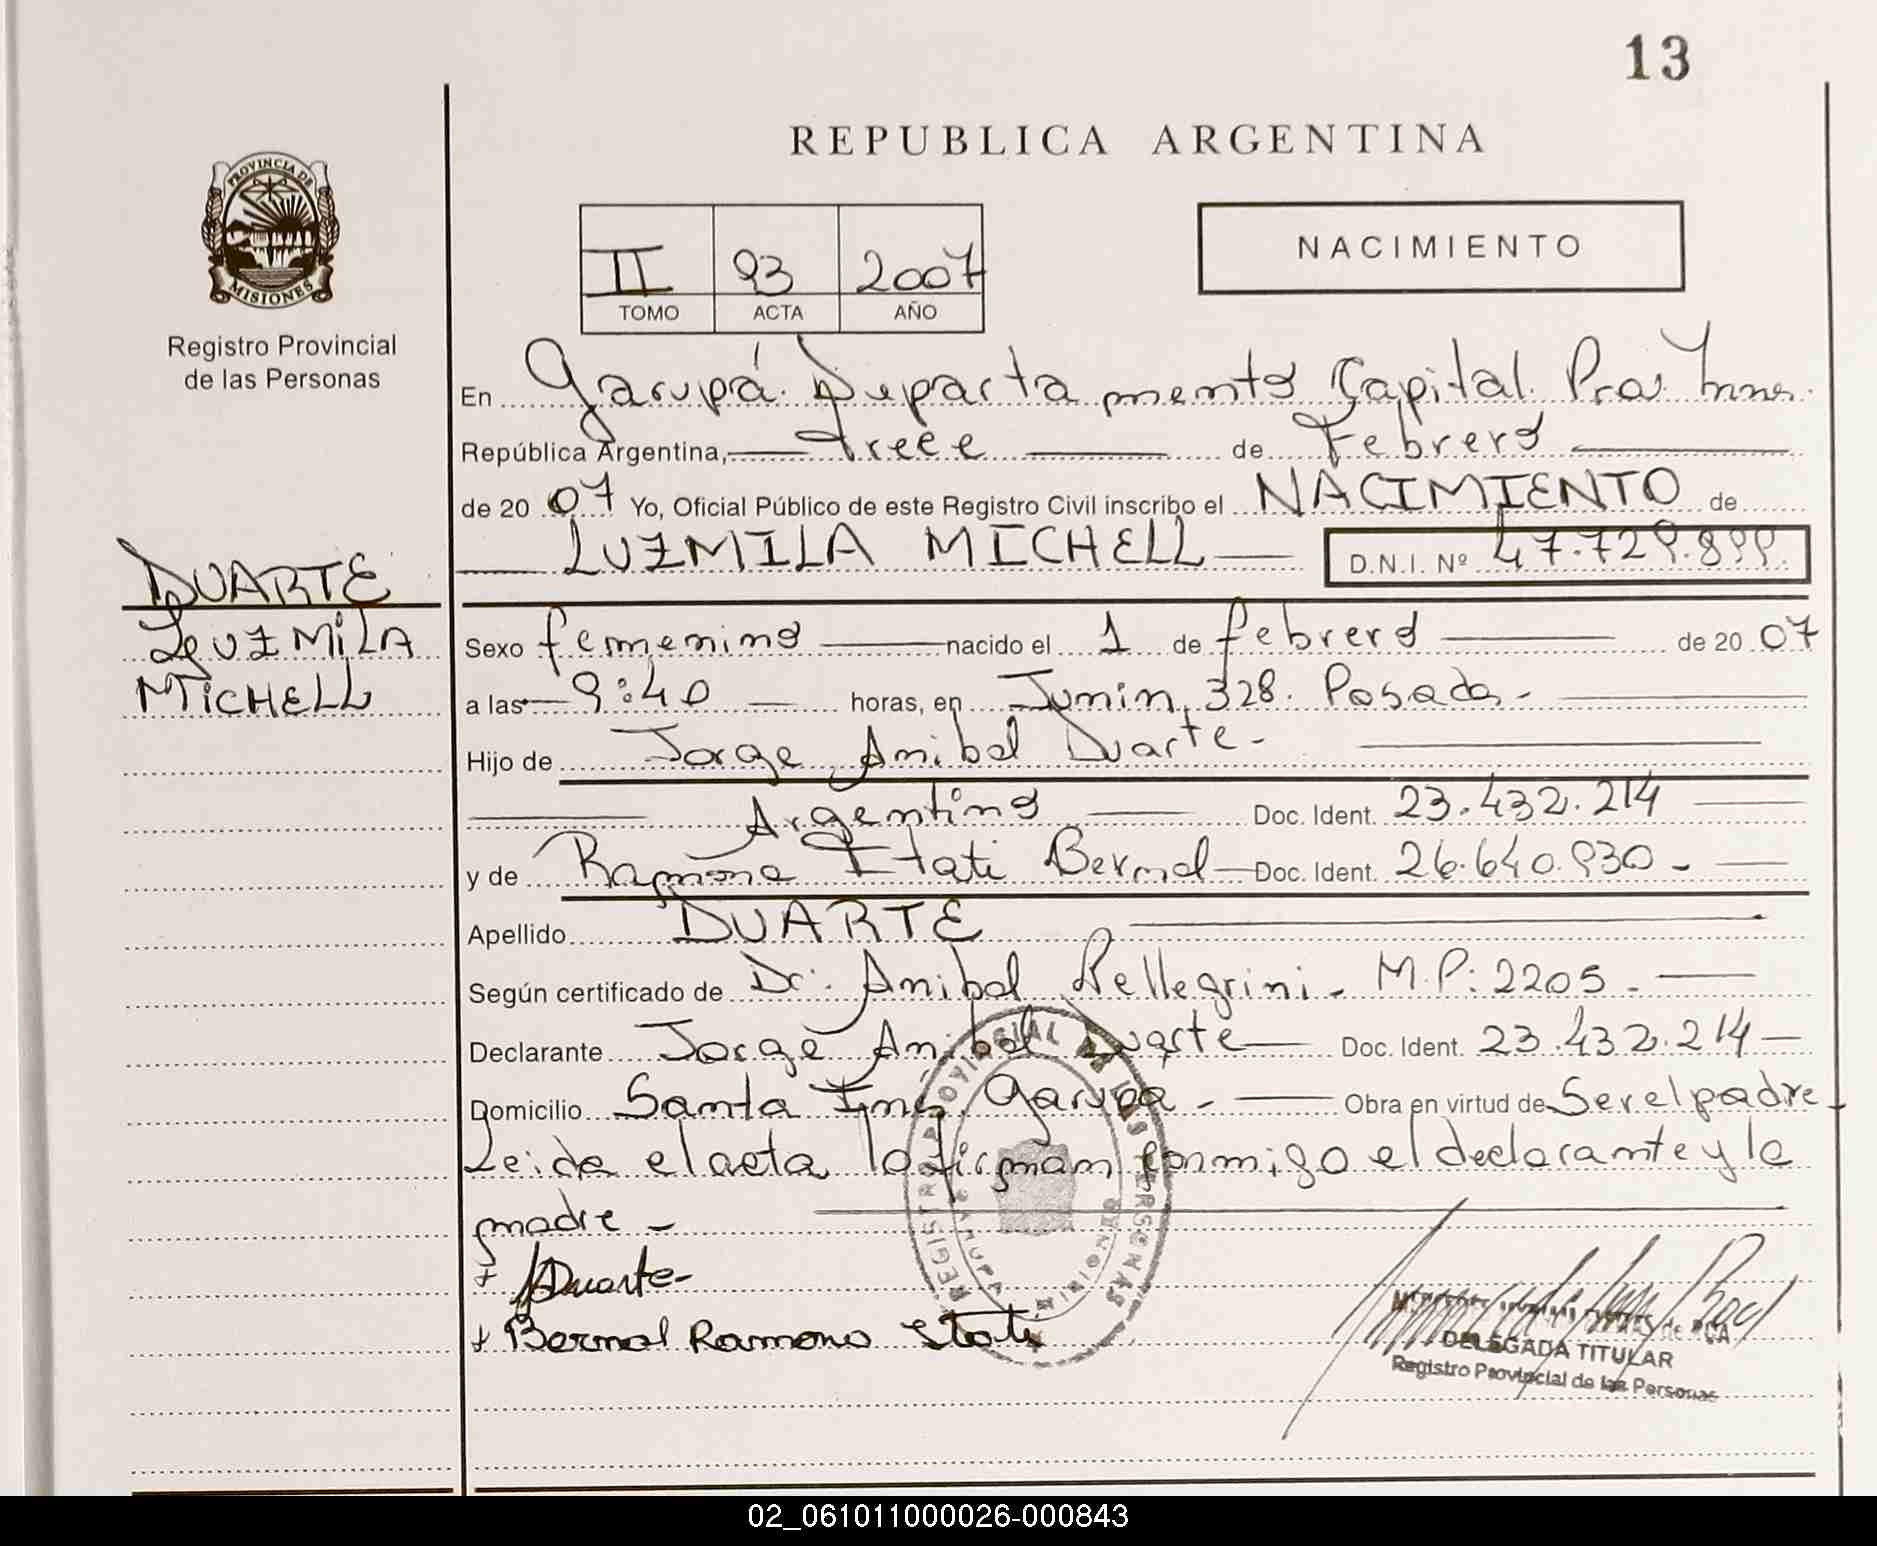 13
REPUBLICA ARGENTINA
PROVINCIA DE
MISIONES
Registro Provincial
de las Personas
II 93 2007
TOMO ACTA AÑO
NACIMIENTO
En Garupá. Departamento Capital. Pcia. Mnes.
República Argentina, Trece de Febrero
de 20 07 Yo, Oficial Público de este Registro Civil inscribo el NACIMIENTO de
LUZMILA MICHELL D.N.I. Nº 47.729.899.
DUARTE
LUZMILA
MICHELL
Sexo femenino nacido el 1 de febrero de 20 07
a las 9:40 horas, en Junin, 328. Posadas -
Hijo de Jorge Anibal Duarte -
Argentino Doc. Ident. 23.432.214
y de Ramona Itati Bernal Doc. Ident. 26.640.930 -
Apellido DUARTE
Según certificado de Dr. Anibal Pellegrini - M.P: 2205 -
Declarante Jorge Anibal Duarte Doc. Ident. 23.432.214 -
Domicilio Santa Inés, Garupa - Obra en virtud de Ser el padre
Leida el acta la firman conmigo el declarante y la
madre -
+ Duarte -
+ Bernal Ramona Itati
REGISTRO PROVINCIAL DE LAS PERSONAS
GARUPA MISIONES
DELEGADA TITULAR
Registro Provincial de las Personas
02_061011000026-000843